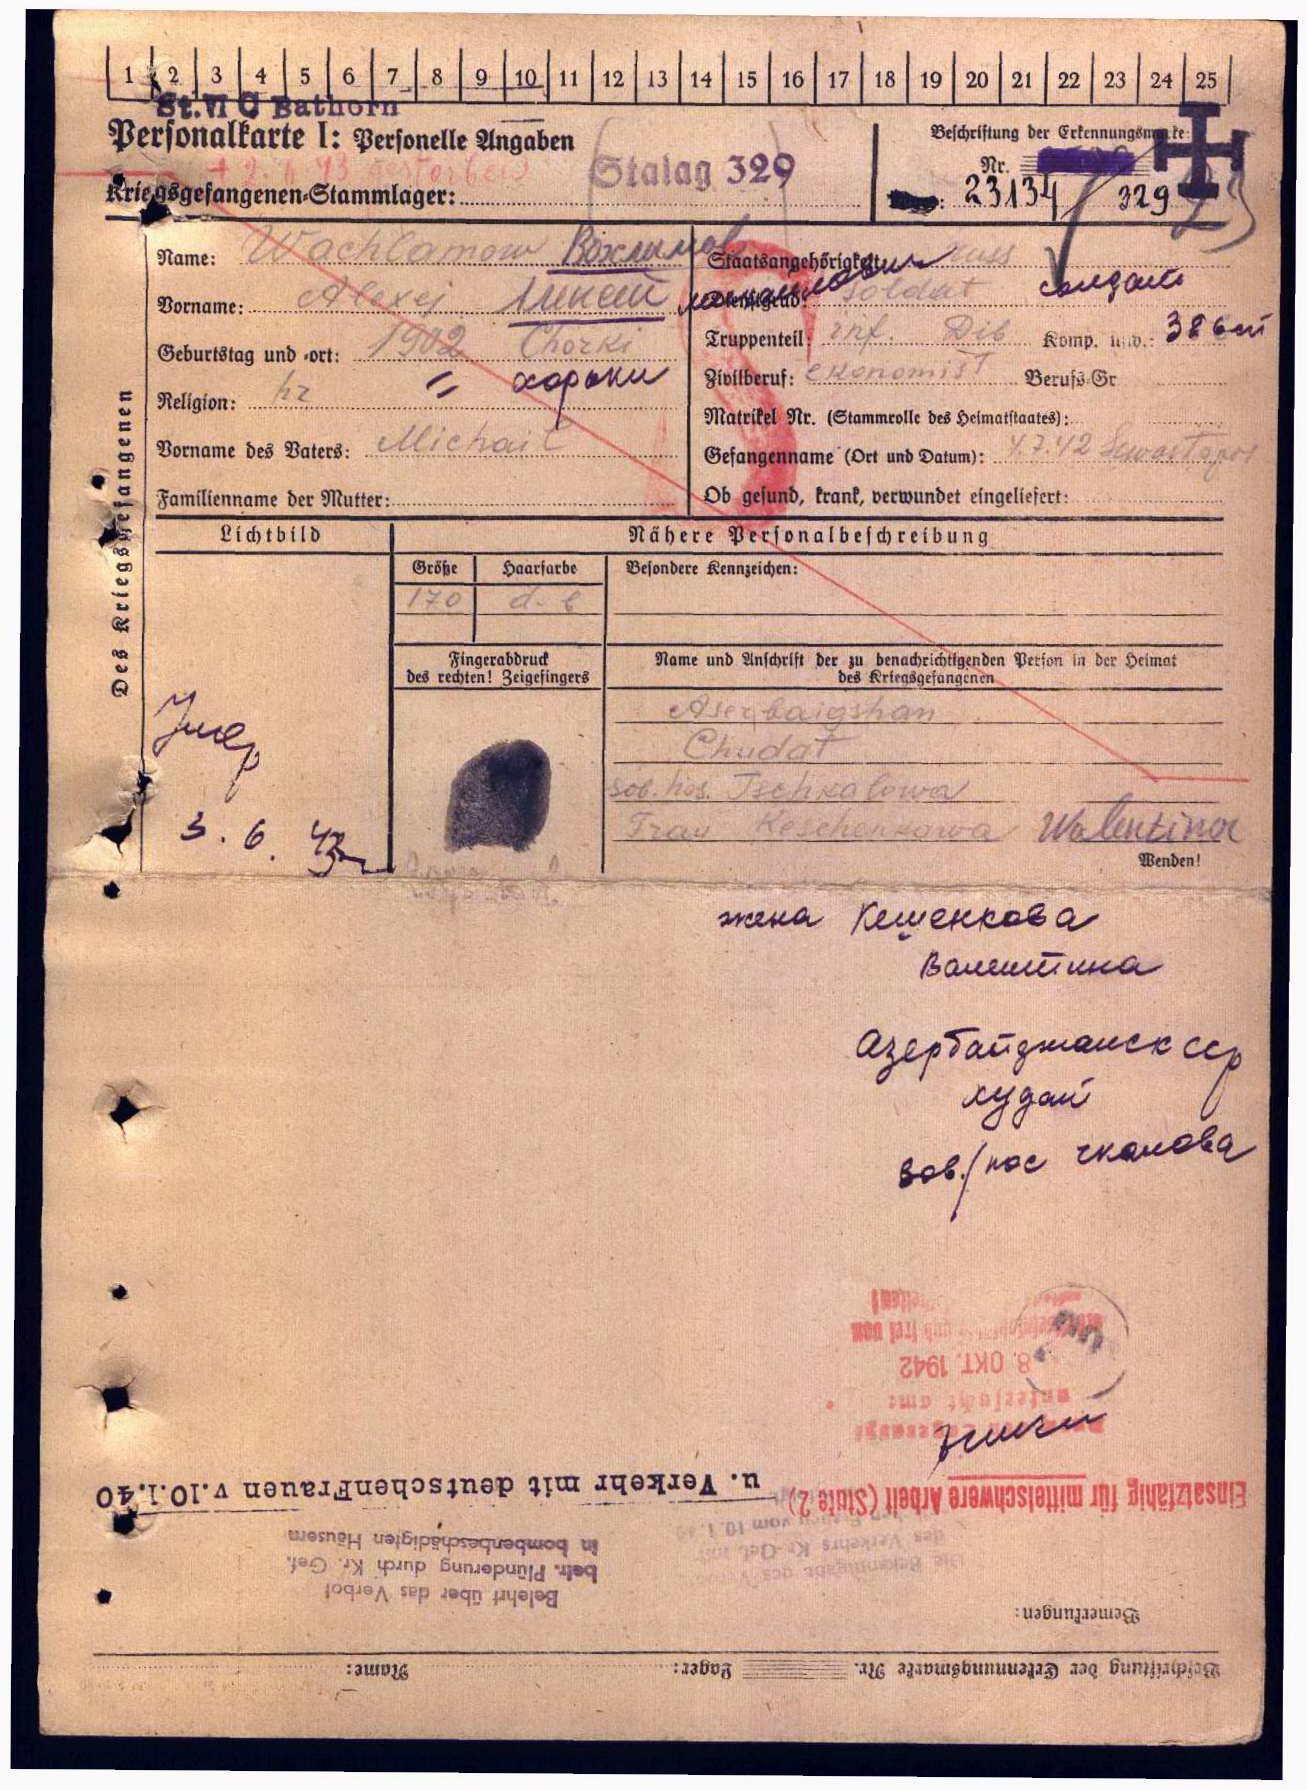 1 2 3 4 5 6 7 8 9 10 11 12 13 14 15 16 17 18 19 20 21 22 23 24 25
St. VI C Bathorn
Personalkarte I: Personelle Angaben
Beschriftung der Erkennungsmarke:
+ 2. 6 43 gestorben
Stalag 329
Nr.
Kriegsgefangenen-Stammlager:
23134 / 329
Des Kriegsgefangenen
Name: Wachlamow Вохламов
Staatsangehörigkeit: russ
Vorname: Alexej Алексей
Dienstgrad: Soldat солдат
Geburtstag und -ort: 1902 Chorki
Truppenteil: inf. Div Komp. usw.: 386
" хорьки
Zivilberuf: ekonomist Berufs-Gr
Religion:
Matrikel Nr. (Stammrolle des Heimatstaates):
Vorname des Vaters: Michail
Gefangenname (Ort und Datum): 4.7.42 Sewastopol
Familienname der Mutter:
Ob gesund, krank, verwundet eingeliefert:
Lichtbild
Nähere Personalbeschreibung
Größe Haarfarbe Besondere Kennzeichen:
170 d-b
Fingerabdruck
des rechten! Zeigefingers
Name und Anschrift der zu benachrichtigenden Person in der Heimat
des Kriegsgefangenen
Aserbaigshan
Chudat
sob. hos. Tschkalowa
Frau Keschenkowa Walentina
Умер
3. 6. 43
Wenden!
жена Кешенкова
Валентина
Азербайджанск сср
худат
Чкалова
8. OKT. 1942
untersucht am:
Einsatzfähig für mittelschwere Arbeit (Stufe 2)
u. Verkehr mit deutschenFrauen v.10.1.40
in bombenbeschädigten Häusern
betr. Plünderung durch Kr. Gef.
Belehrt über das Verbot
Bemerkungen:
Beschriftung der Erkennungsmarke Nr. Lager: Name: